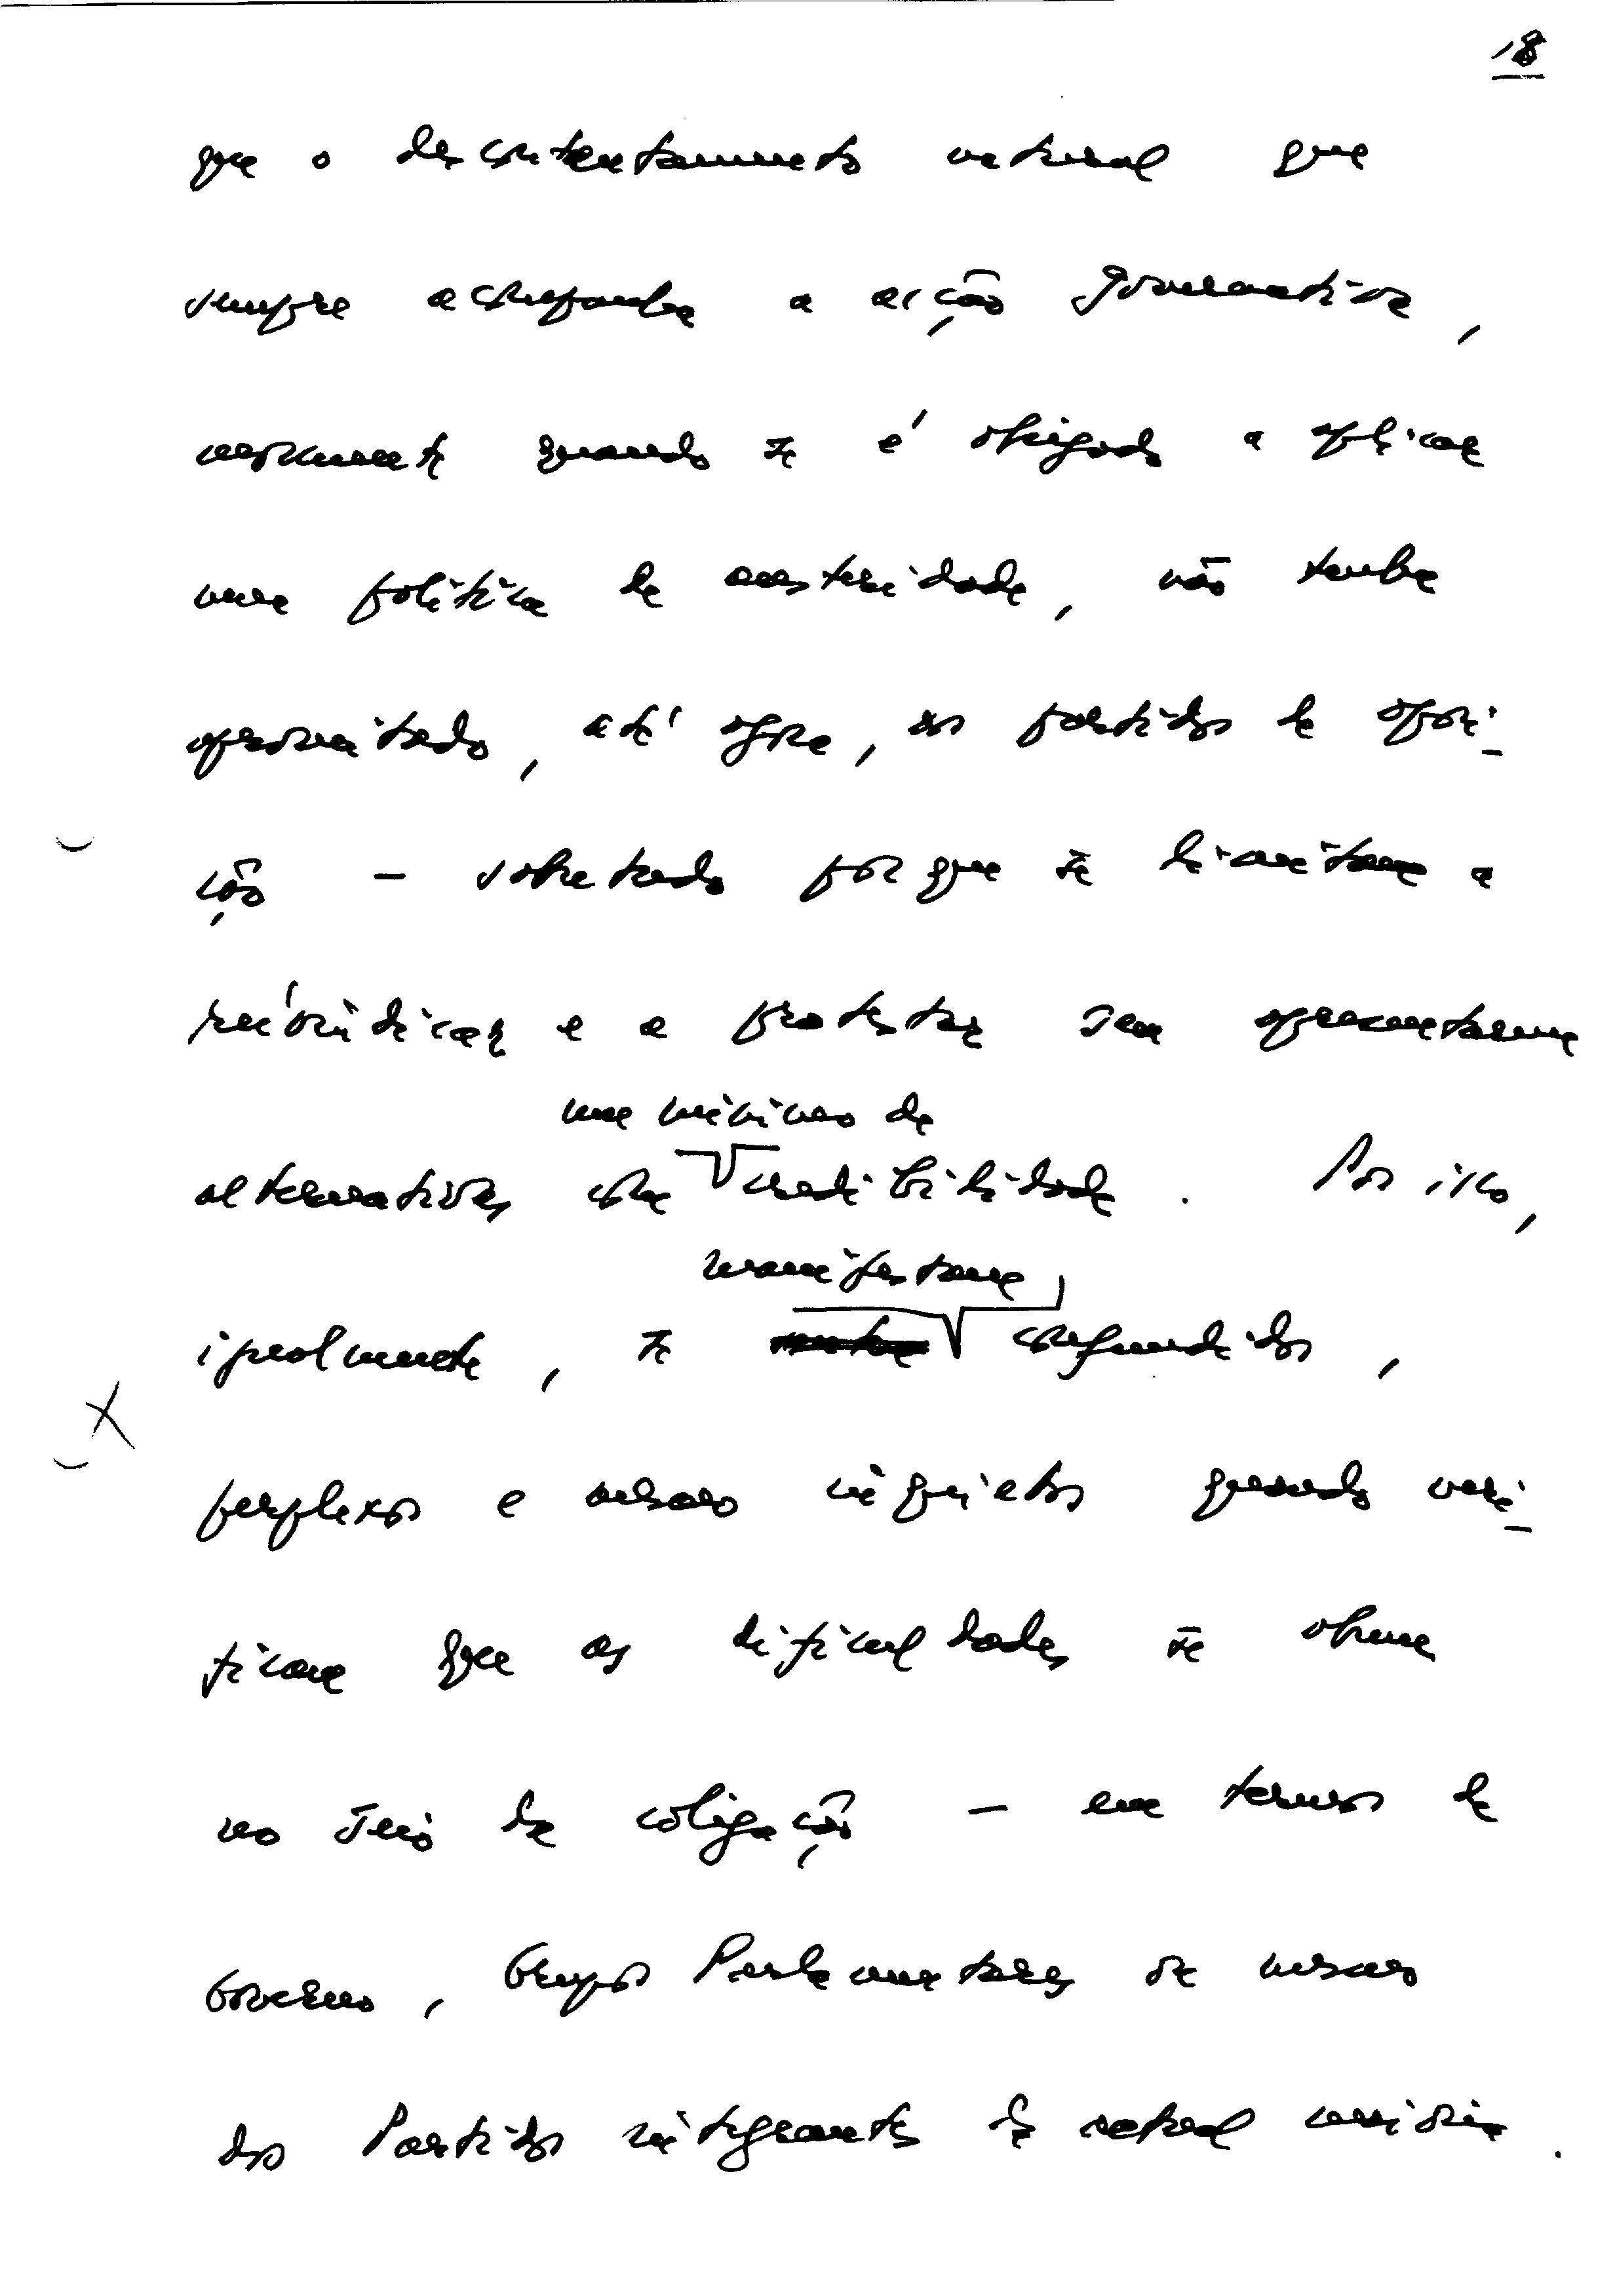 18
que o descontentamento natural que
sempre acompanha a acção governativa,
mormente quando se é obrigado a aplicar
uma política de austeridade, não tenha
aproveitado, até agora, aos partidos de oposi-
ção - sobretudo porque se limitam a
reivindicar e a protestar sem apresentarem
um mínimo de
alternativas com credibilidade. Por isso,
manifestam
igualmente, se confundidos,
perplexos e mesmo inquietos quando veri-
ficam que as dificuldades se
no seio da coligação - em termos de
Governo, Grupos Parlamentares ou mesmo
dos Partidos integrantes da actual maioria.